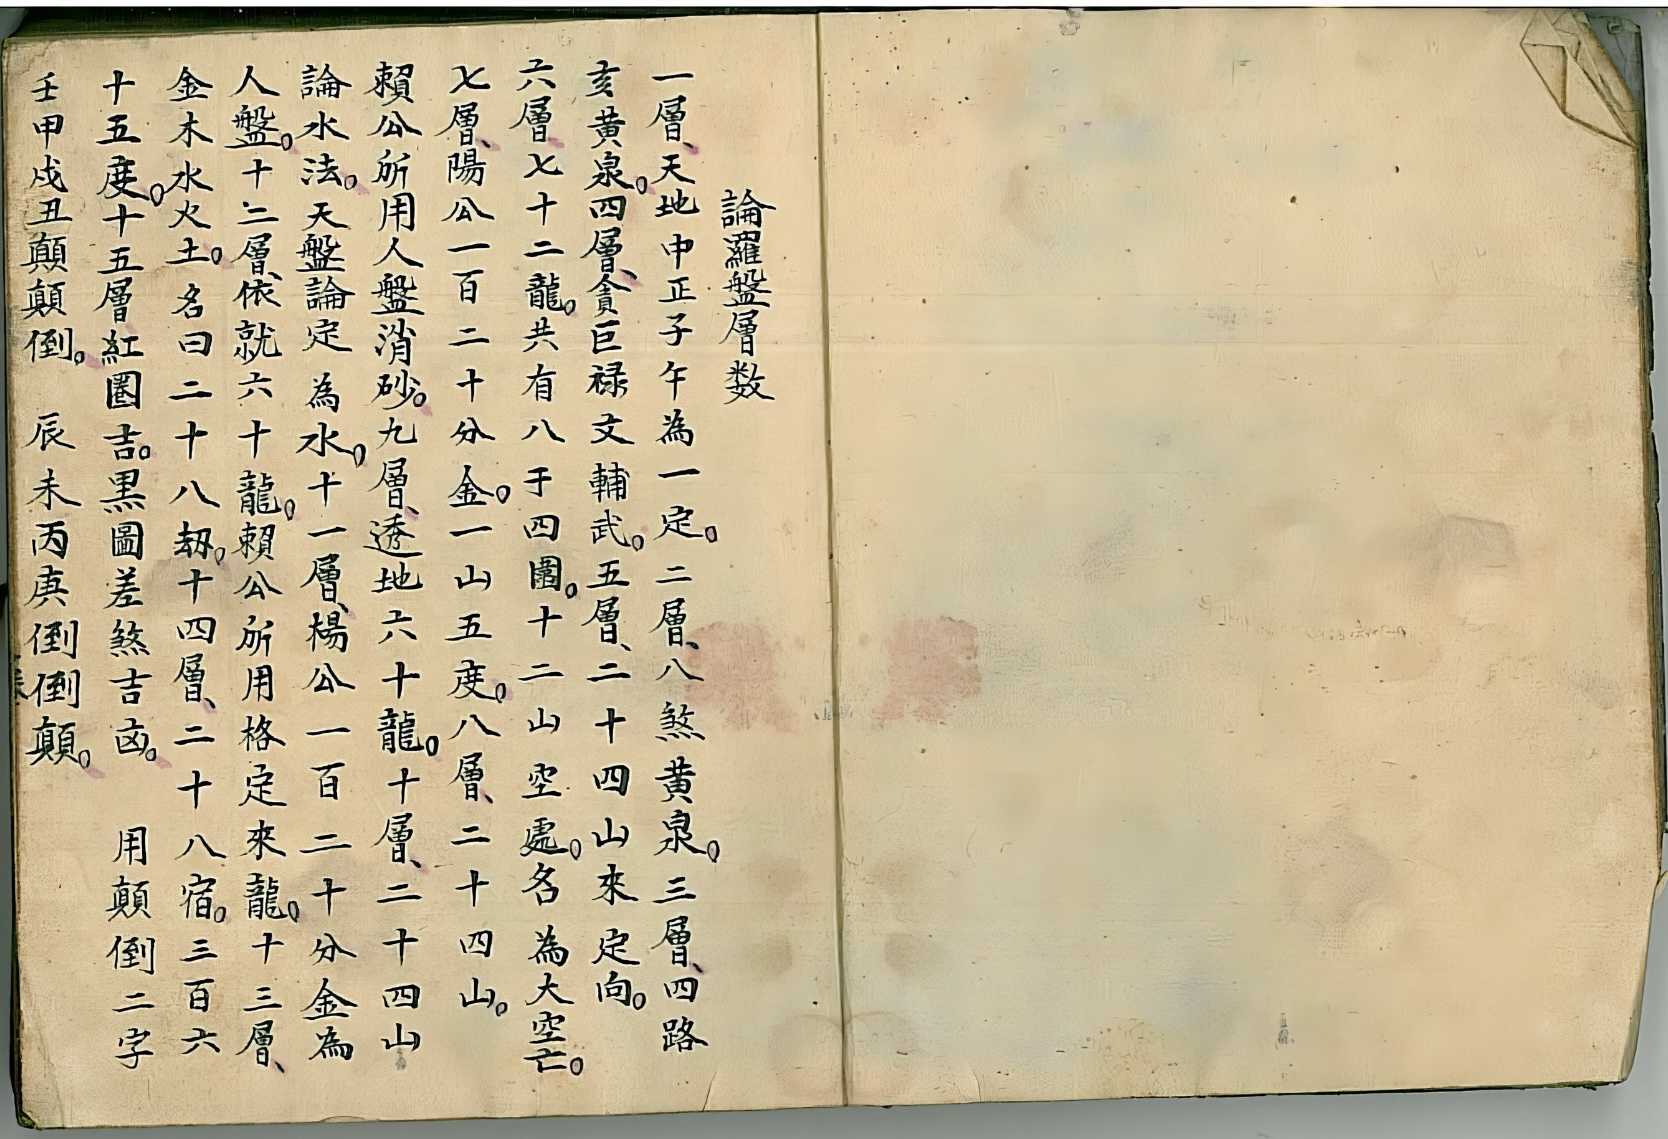 論羅盤層数
一層、天地中正子午為一定。二層、八煞黄泉。三層、四路
亥黄泉。四層、貪巨禄文輔武。五層、二十四山來定向。
六層七十二龍。共有八于四圍。十二山空處。名為大空亡。
七層、陽公一百二十分金。一山五度。八層、二十四山。
賴公所用人盤消砂。九層、透地六十龍。十層、二十四山
論水法。天盤論定為水。十一層、楊公一百二十分金為
人盤。十二層、依就六十龍。賴公所用格定來龍。十三層、
金木水火土。名曰二十八劫。十四層、二十八宿。三百六
十五度。十五層紅圏吉。黒圖差煞吉凶。 用顛倒二字
壬甲戍丑顛顛倒。 辰未丙庚倒倒顛。